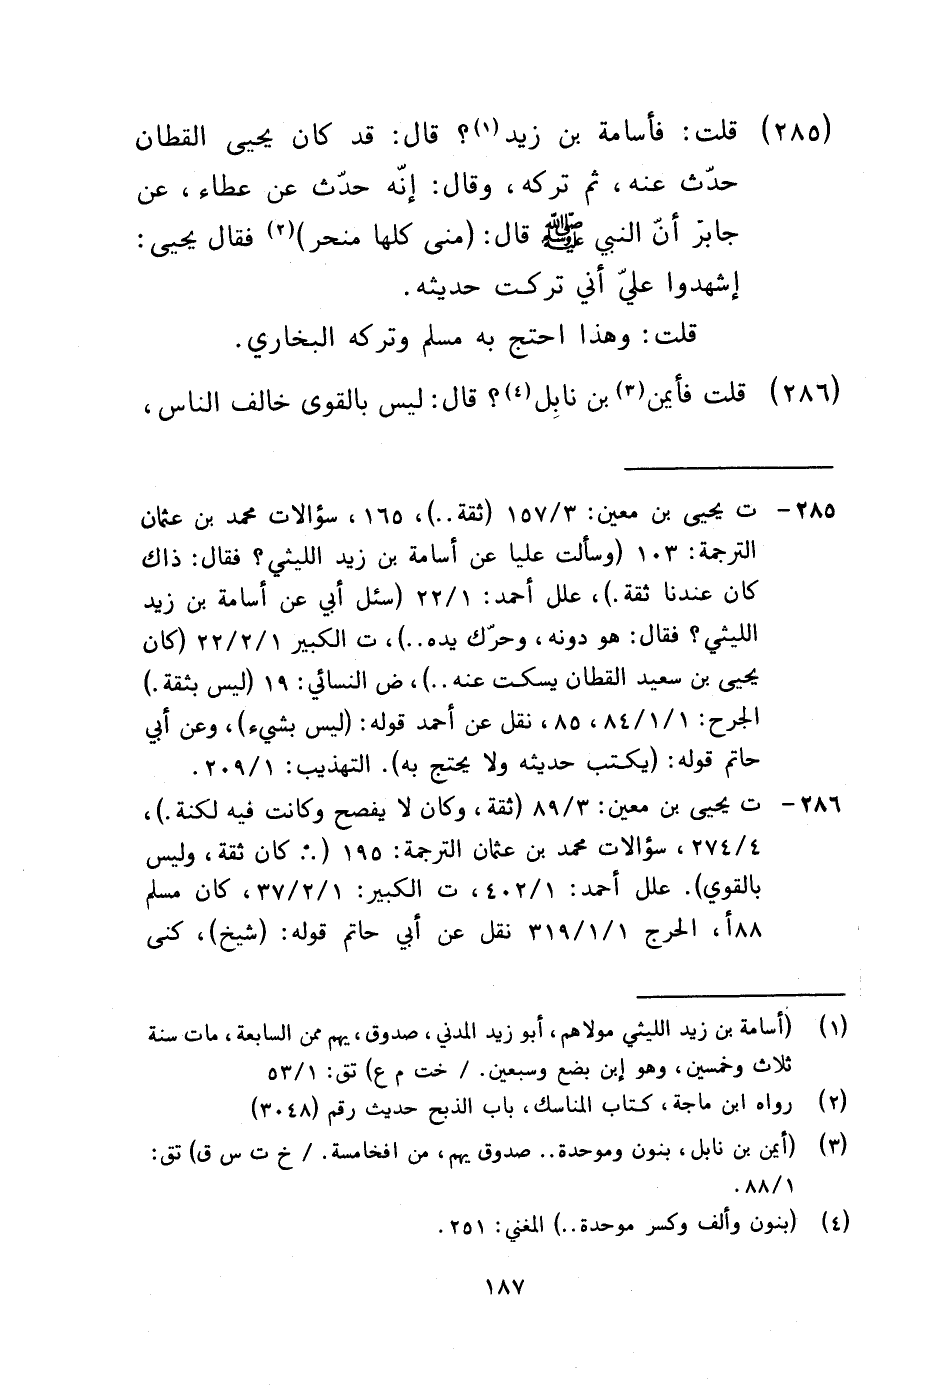 (٢٨٥) قلت: فأسامة بن زيد(١)؟ قال: قد كان يحيى القطان
حدّث عنه، ثم تركه، وقال: إنّه حدّث عن عطاء، عن
جابرّ أنّ النبي ﷺ قال: (منى كلها منحر)(٢) فقال يحيى:
إشهدوا عليّ أني تركت حديثه.
قلت: وهذا احتج به مسلم وتركه البخاري.
(٢٨٦) قلت فأيمن(٣) بن نابِل(٤)؟ قال: ليس بالقوى خالف الناس،
٢٨٥- ت يحيى بن معين: ١٥٧/٣ (ثقة..)، ١٦٥، سؤالات محمد بن عثمان
الترجمة: ١٠٣ (وسألت عليا عن أسامة بن زيد الليثي؟ فقال: ذاك
كان عندنا ثقة.)، علل أحمد: ٢٢/١ (سئل أبي عن أسامة بن زيد
الليثي؟ فقال: هو دونه، وحرّك يده..)، ت الكبير ٢٢/٢/١ (كان
يحيى بن سعيد القطان يسكت عنه..)، ض النسائي: ١٩ (ليس بثقة.)
الجرح: ٨٤/١/١، ٨٥، نقل عن أحمد قوله: (ليس بشيء)، وعن أبي
حاتم قوله: (يكتب حديثه ولا يحتج به). التهذيب: ٢٠٩/١.
٢٨٦- ت يحيى بن معين: ٨٩/٣ (ثقة، وكان لا يفصح وكانت فيه لكنة.)،
٢٧٤/٤، سؤالات محمد بن عثمان الترجمة: ١٩٥ (.. كان ثقة، وليس
بالقوي). علل أحمد: ٤٠٢/١، ت الكبير: ٣٧/٢/١، كان مسلم
٨٨أ، الحرج ٣١٩/١/١ نقل عن أبي حاتم قوله: (شيخ)، كنى
(١) (أسامة بن زيد الليثي مولاهم، أبو زيد المدني، صدوق، يهم ممن السابعة، مات سنة
ثلاث وخمسين، وهو إبن بضع وسبعين. / خت م ع) تق: ٥٣/١
(٢) رواه ابن ماجة، كتاب المناسك، باب الذبح حديث رقم (٣٠٤٨)
(٣) (أيمن بن نابل، بنون وموحدة.. صدوق يهم، من افخامسة. / خ ت س ق) تق:
٨٨/١.
(٤) (بنون وألف وكسر موحدة..) المغني: ٢٥١.
١٨٧